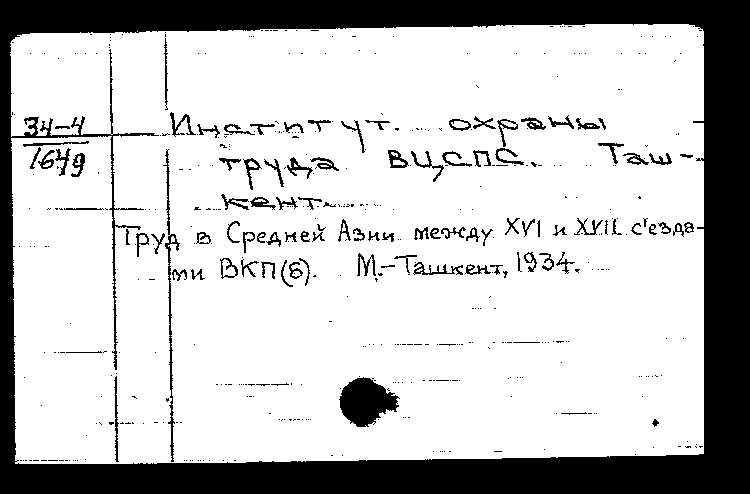 34-4
1649
Институт охраны
труда ВЦСПС. Таш-
кент.
Труд в Средней Азии между XVI и XVII с'езда-
ми ВКП(б). М.-Ташкент, 1934.